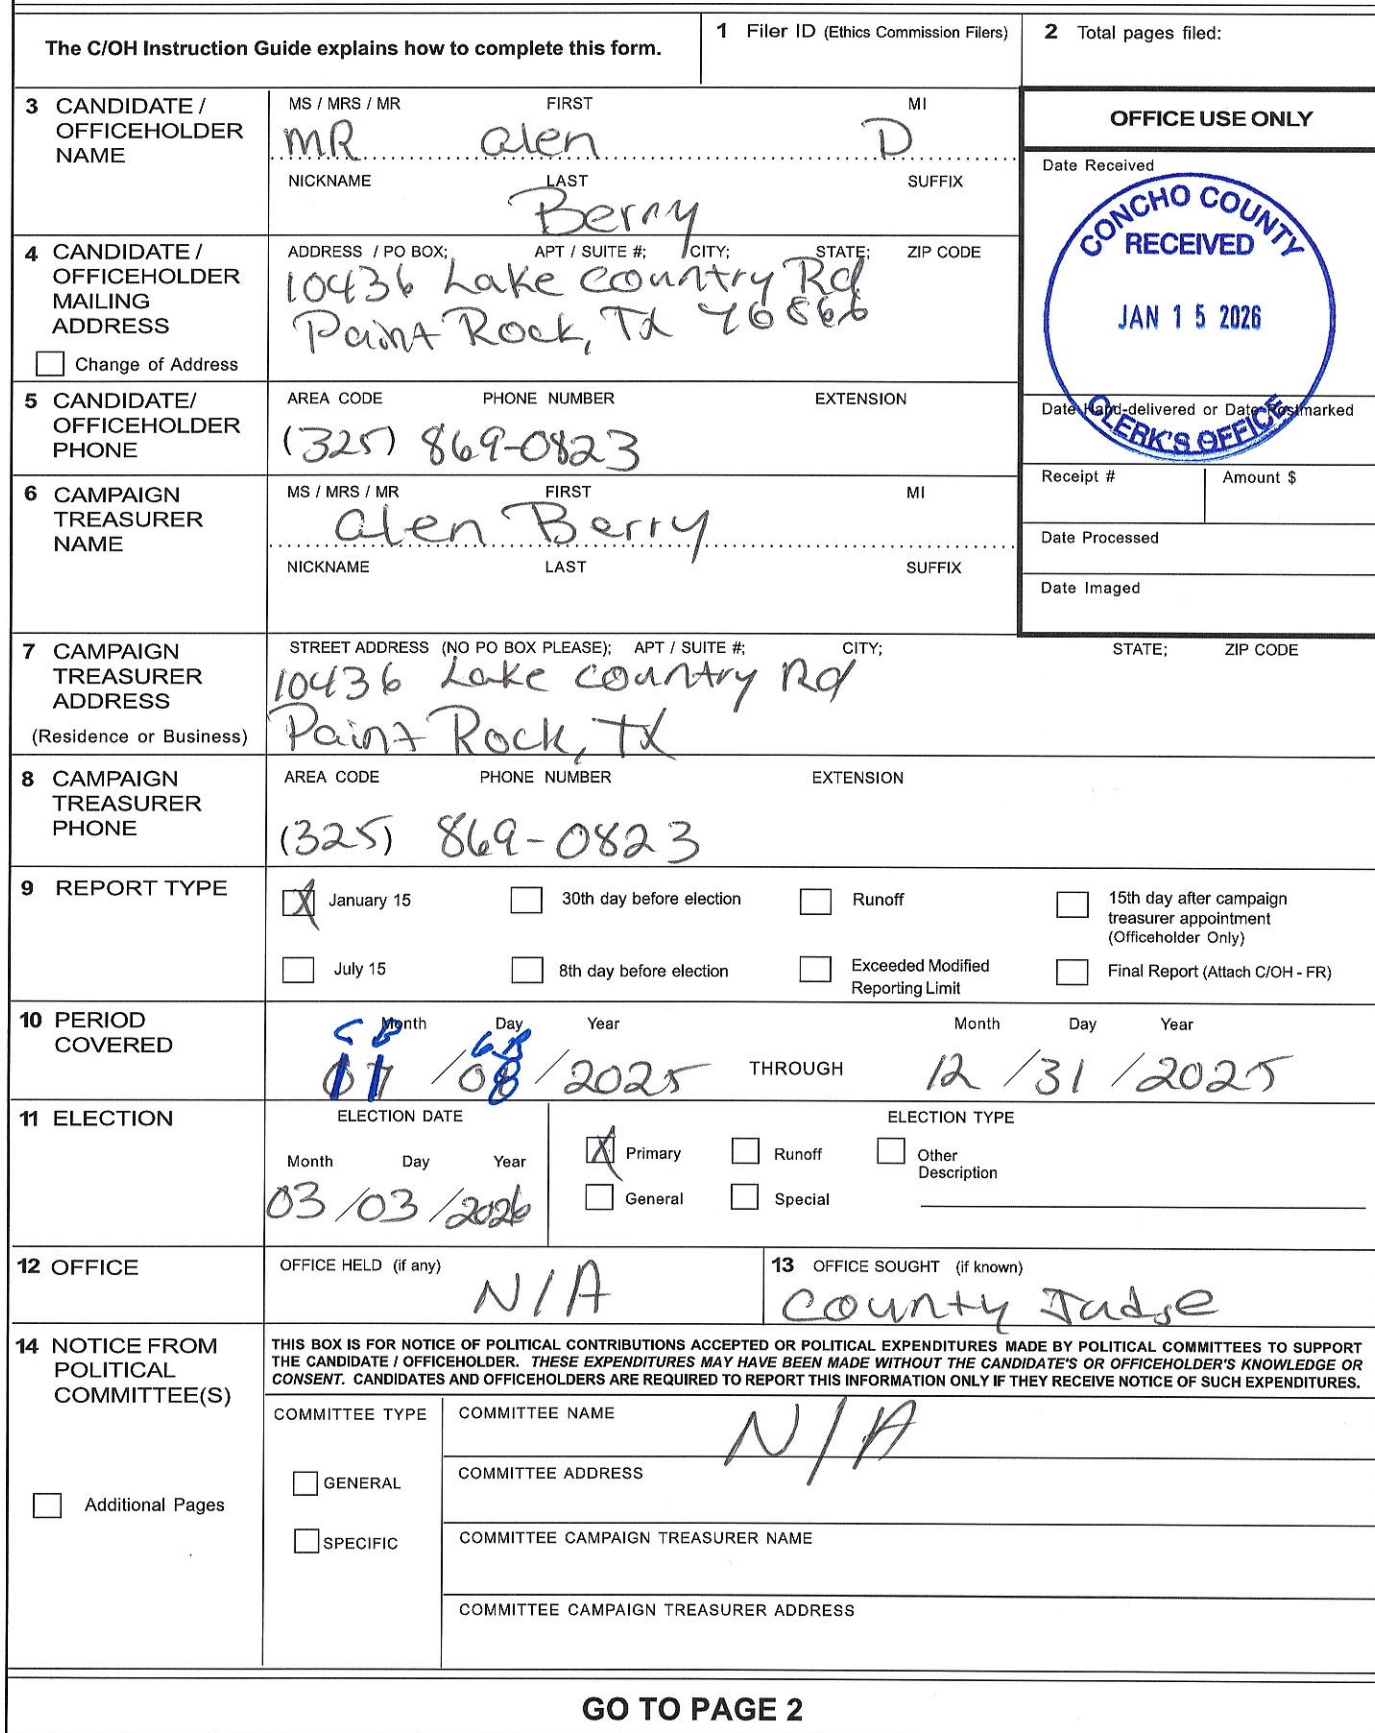 The C/OH Instruction Guide explains how to complete this form.
1 Filer ID (Ethics Commission Filers)
2 Total pages filed:
3 CANDIDATE / OFFICEHOLDER NAME
MS / MRS / MR FIRST MI
MR alen D
NICKNAME LAST SUFFIX
Berry
OFFICE USE ONLY
Date Received
CONCHO COUNTY
RECEIVED
JAN 15 2026
CLERK'S OFFICE
Date Hand-delivered or Date Postmarked
Receipt # Amount $
Date Processed
Date Imaged
4 CANDIDATE / OFFICEHOLDER MAILING ADDRESS
Change of Address
ADDRESS / PO BOX; APT / SUITE #; CITY; STATE; ZIP CODE
10436 Lake Country Rd
Paint Rock, TX 76866
5 CANDIDATE/ OFFICEHOLDER PHONE
AREA CODE PHONE NUMBER EXTENSION
(325) 869-0823
6 CAMPAIGN TREASURER NAME
MS / MRS / MR FIRST MI
alen Berry
NICKNAME LAST SUFFIX
7 CAMPAIGN TREASURER ADDRESS
(Residence or Business)
STREET ADDRESS (NO PO BOX PLEASE); APT / SUITE #; CITY; STATE; ZIP CODE
10436 Lake Country Rd
Paint Rock, TX
8 CAMPAIGN TREASURER PHONE
AREA CODE PHONE NUMBER EXTENSION
(325) 869-0823
9 REPORT TYPE
X January 15
30th day before election
Runoff
15th day after campaign treasurer appointment (Officeholder Only)
July 15
8th day before election
Exceeded Modified Reporting Limit
Final Report (Attach C/OH - FR)
10 PERIOD COVERED
Month Day Year
/2025
THROUGH
Month Day Year
12 /31 /2025
11 ELECTION
ELECTION DATE
Month Day Year
03 /03 /2026
ELECTION TYPE
X Primary
Runoff
Other Description
General
Special
12 OFFICE
OFFICE HELD (if any)
N/A
13 OFFICE SOUGHT (if known)
County Judge
14 NOTICE FROM POLITICAL COMMITTEE(S)
THIS BOX IS FOR NOTICE OF POLITICAL CONTRIBUTIONS ACCEPTED OR POLITICAL EXPENDITURES MADE BY POLITICAL COMMITTEES TO SUPPORT
THE CANDIDATE / OFFICEHOLDER. THESE EXPENDITURES MAY HAVE BEEN MADE WITHOUT THE CANDIDATE'S OR OFFICEHOLDER'S KNOWLEDGE OR
CONSENT. CANDIDATES AND OFFICEHOLDERS ARE REQUIRED TO REPORT THIS INFORMATION ONLY IF THEY RECEIVE NOTICE OF SUCH EXPENDITURES.
Additional Pages
COMMITTEE TYPE
GENERAL
SPECIFIC
COMMITTEE NAME
N/A
COMMITTEE ADDRESS
COMMITTEE CAMPAIGN TREASURER NAME
COMMITTEE CAMPAIGN TREASURER ADDRESS
GO TO PAGE 2